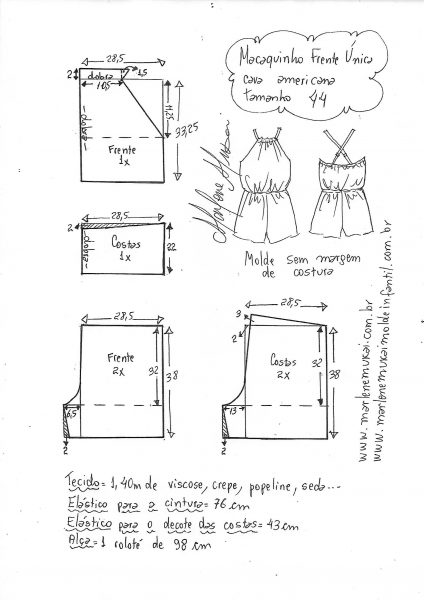 Macaquinho Frente Única
cava americana
tamanho 44
28,5
2
dobra
1,5
10,5
dobra
11,25
33,25
Frente
1x
Marlene Mukai
28,5
2
dobra
Costas
1x
22
Molde sem margem
de costura
28,5
Frente
2x
32
38
6,5
2
28,5
3
2
Costas
2x
32
38
13
2
www.marlenemukai.com.br
www.marlenemukaimoldeinfantil.com.br
Tecido= 1,40m de viscose, crepe, popeline, seda...
Elástico para a cintura= 76 cm
Elástico para o decote das costas= 43 cm
Alça= 1 rolotê de 98 cm